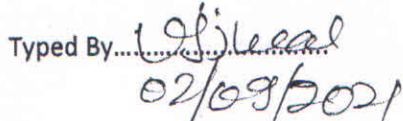 Typed By..............................
02/09/2021